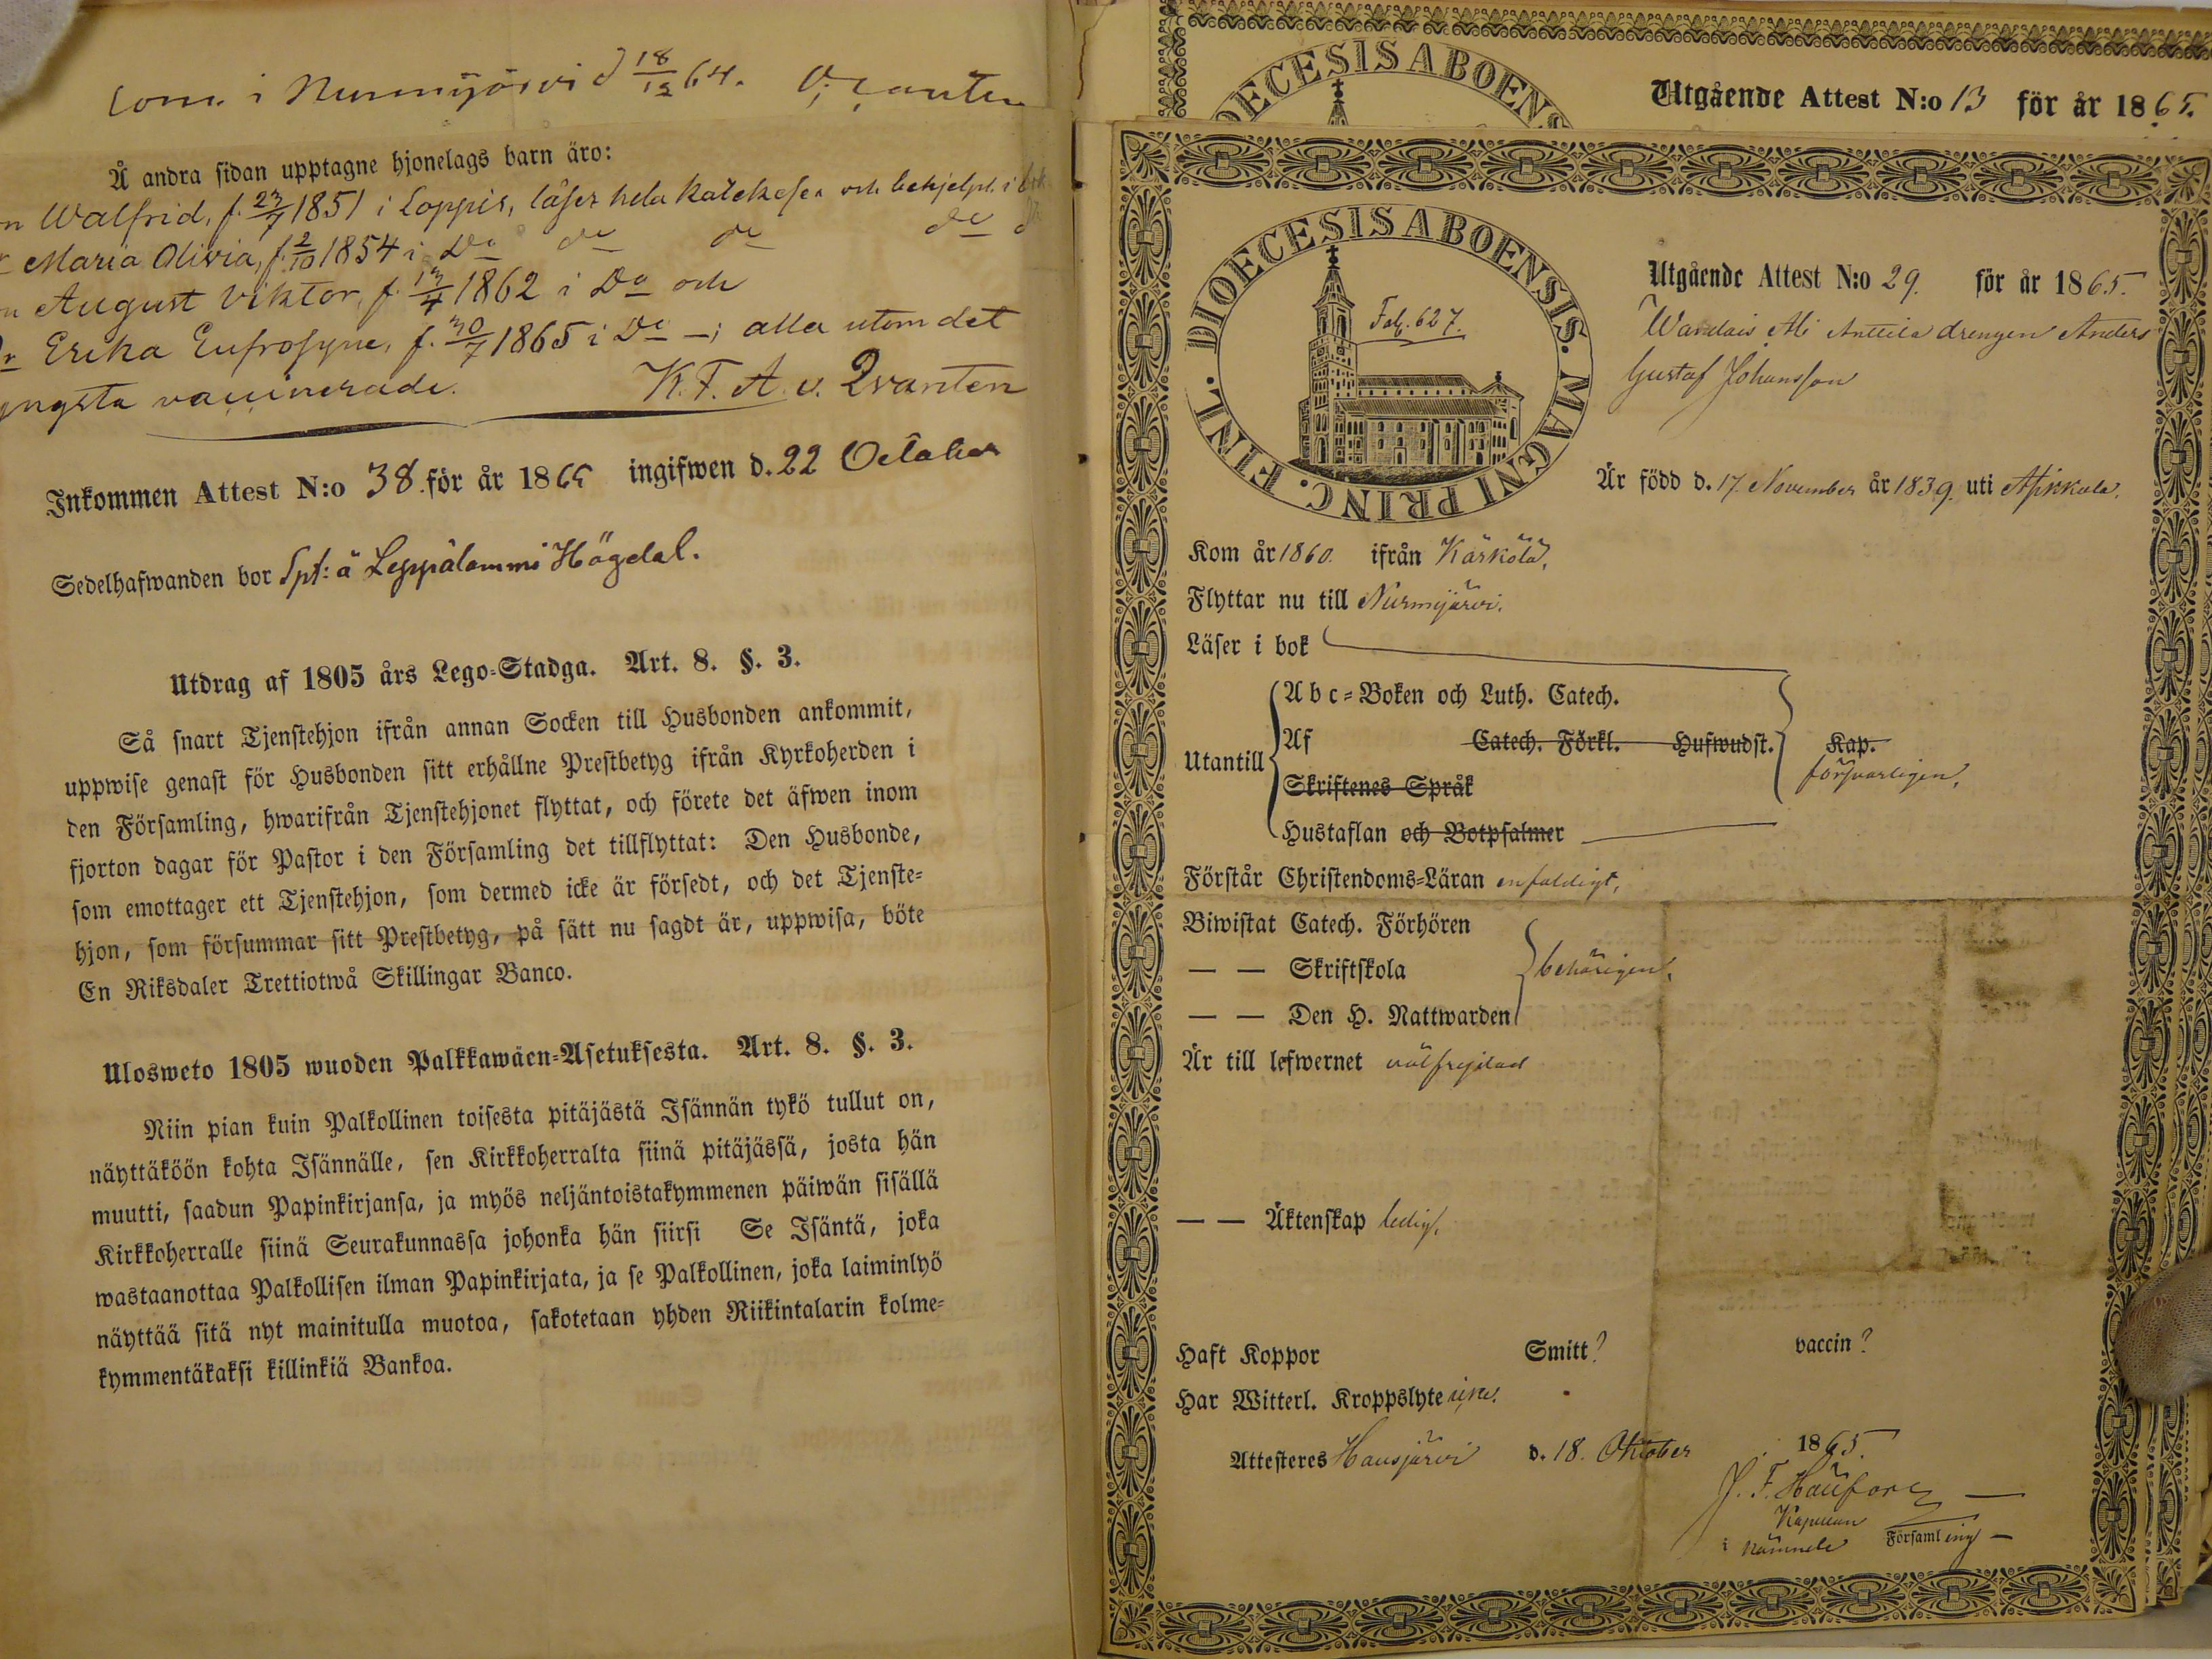 Kom. i Nurmijärvi d 18/12 64. Qvanten
Å andra sidan upptagne hjonelags barn äro:
Walfrid, f. 27/7 1851 i Loppis, läser hela katekesen och behjelpl. i
Maria Olivia, f. 2/10 1854 i Do do do do
August Viktor, f. 17/4 1862 i Do och
Erika Eufrosyne, f. 30/7 1865 i Do —; alla utom det
yngsta vaccinerade. K. F. A. v. Qvanten
Inkommen Attest N:o 38 för år 1865 ingifwen d. 22 October
Sedelhafwanden bor Spt: å Leppälammi Högdal.
Utdrag af 1805 års Lego-Stadga. Art. 8. §. 3.
Så snart Tjenstehjon ifrån annan Socken till Husbonden ankommit,
uppwise genast för Husbonden sitt erhållne Prestbetyg ifrån Kyrkoherden i
den Församling, hwarifrån Tjenstehjonet flyttat, och förete det äfwen inom
fjorton dagar för Pastor i den Församling det tillflyttat: Den Husbonde,
som emottager ett Tjenstehjon, som dermed icke är försedt, och det Tjenste-
hjon, som försummar sitt Prestbetyg, på sätt nu sagdt är, uppwisa, böte
En Riksdaler Trettiotwå Skillingar Banco.
Ulosweto 1805 wuoden Palkkawäen-Asetuksesta. Art. 8. §. 3.
Niin pian kuin Palkollinen toisesta pitäjästä Isännän tykö tullut on,
näyttäköön kohta Isännälle, sen Kirkkoherralta siinä pitäjässä, josta hän
muutti, saadun Papinkirjansa, ja myös neljäntoistakymmenen päiwän sisällä
Kirkkoherralle siinä Seurakunnassa johonka hän siirsi Se Isäntä, joka
wastaanottaa Palkollisen ilman Papinkirjata, ja se Palkollinen, joka laiminlyö
näyttää sitä nyt mainitulla muotoa, sakotetaan yhden Riikintalarin kolme-
kymmentäkaksi killinkiä Bankoa.
DIOECESIS ABOENS
Utgående Attest N:o 13 för år 1865.
DIOECESIS ABOENSIS. MAGNI PRINC. FINL.
Fol. 627.
Utgående Attest N:o 29. för år 1865.
Anttila drengen Anders
Gustaf Johansson
Är född d. 17. November år 1839. uti
Kom år 1860. ifrån Kärkölä.
Flyttar nu till Nurmijärvi.
Läser i bok
Utantill
Abc-Boken och Luth. Catech.
Af Catech. Förkl. Hufwudst. Kap.
försvarligen.
Skriftenes Språk
Hustaflan och Botpsalmer
Förstår Christendoms-Läran enfaldigt.
Biwistat Catech. Förhören
— — Skriftskola behörigen.
— — Den H. Nattwarden
Är till lefwernet välfrejdad
— — Äktenskap ledig.
Haft Koppor Smitt? vaccin?
Har Witterl. Kroppslyte
Attesteres Hausjärvi d. 18. Oktober 1865.
Kapellan
i nämnde Församling —